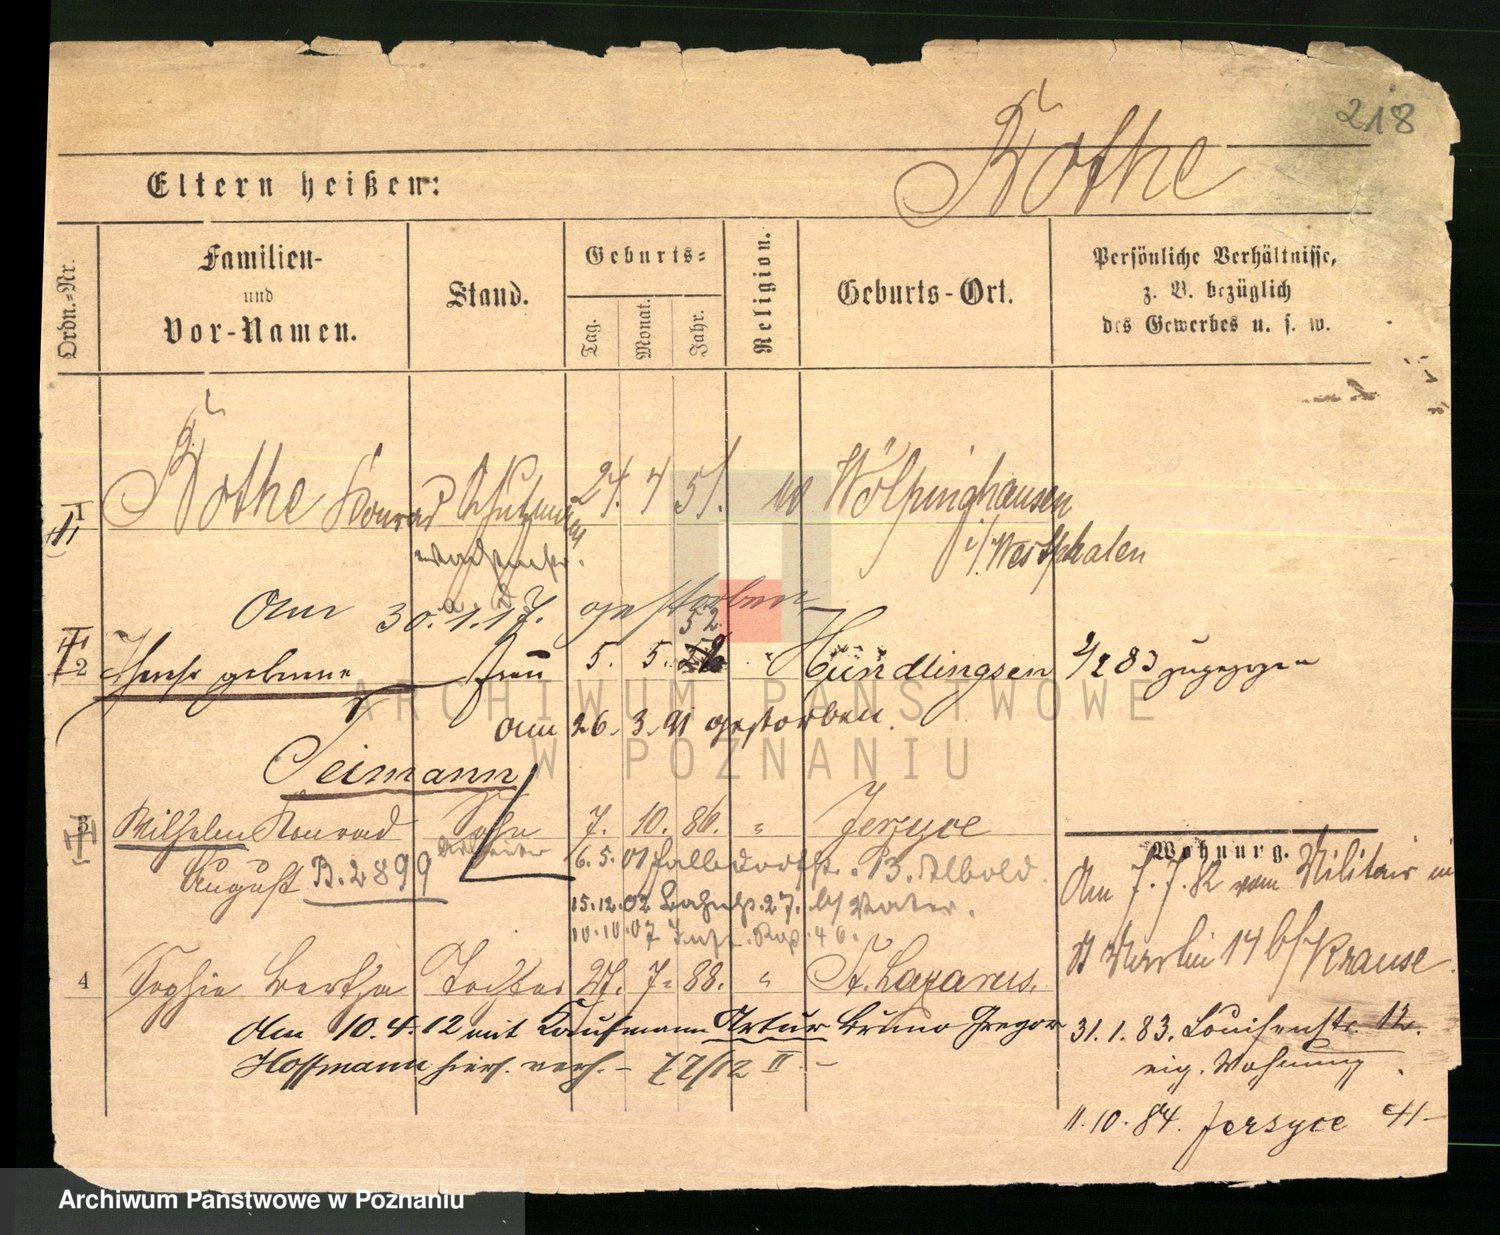 218
Rothe
Eltern heißen:
Ordn.=Nr.
Familien-
und
Vor-Namen.
Stand.
Geburts=
Tag.
Monat.
Jahr.
Religion.
Geburts-Ort.
Persönliche Verhältnisse,
z. B. bezüglich
des Gewerbes u. s. w.
1 Rothe Konrad Schutzmann 24. 4 51. Wölpinghausen
i/Westphalen
am 30.1.17. gestorben
52
2 geborene Frau 5. 5. " Hündlingsen 2/2 83 zugezogen
am 26. 3. 91 gestorben.
Teimann
3 Wilhelm Konrad Sohn 7. 10. 86. " Jerzyce
August B. 2899
Arbeiter
6. 5. 01 13.
15.12.02 27. b/ Vater.
10.10.07 46.
4 Sophie Bertha Tochter 27. 7. 88. " St. Lazarus.
Am 10.4.12 mit Kaufmann Artur Bruno Gregor
Hoffmann hier verh. - 77/12 II. -
Wohnung.
Am 7.7.82 vom Militair in
14 b/ Krause.
31.1.83. Louisenstr. 12.
eig. Wohnung.
11.10.84. Jersyce 41-
ARCHIWUM PAŃSTWOWE
W POZNANIU
Archiwum Państwowe w Poznaniu